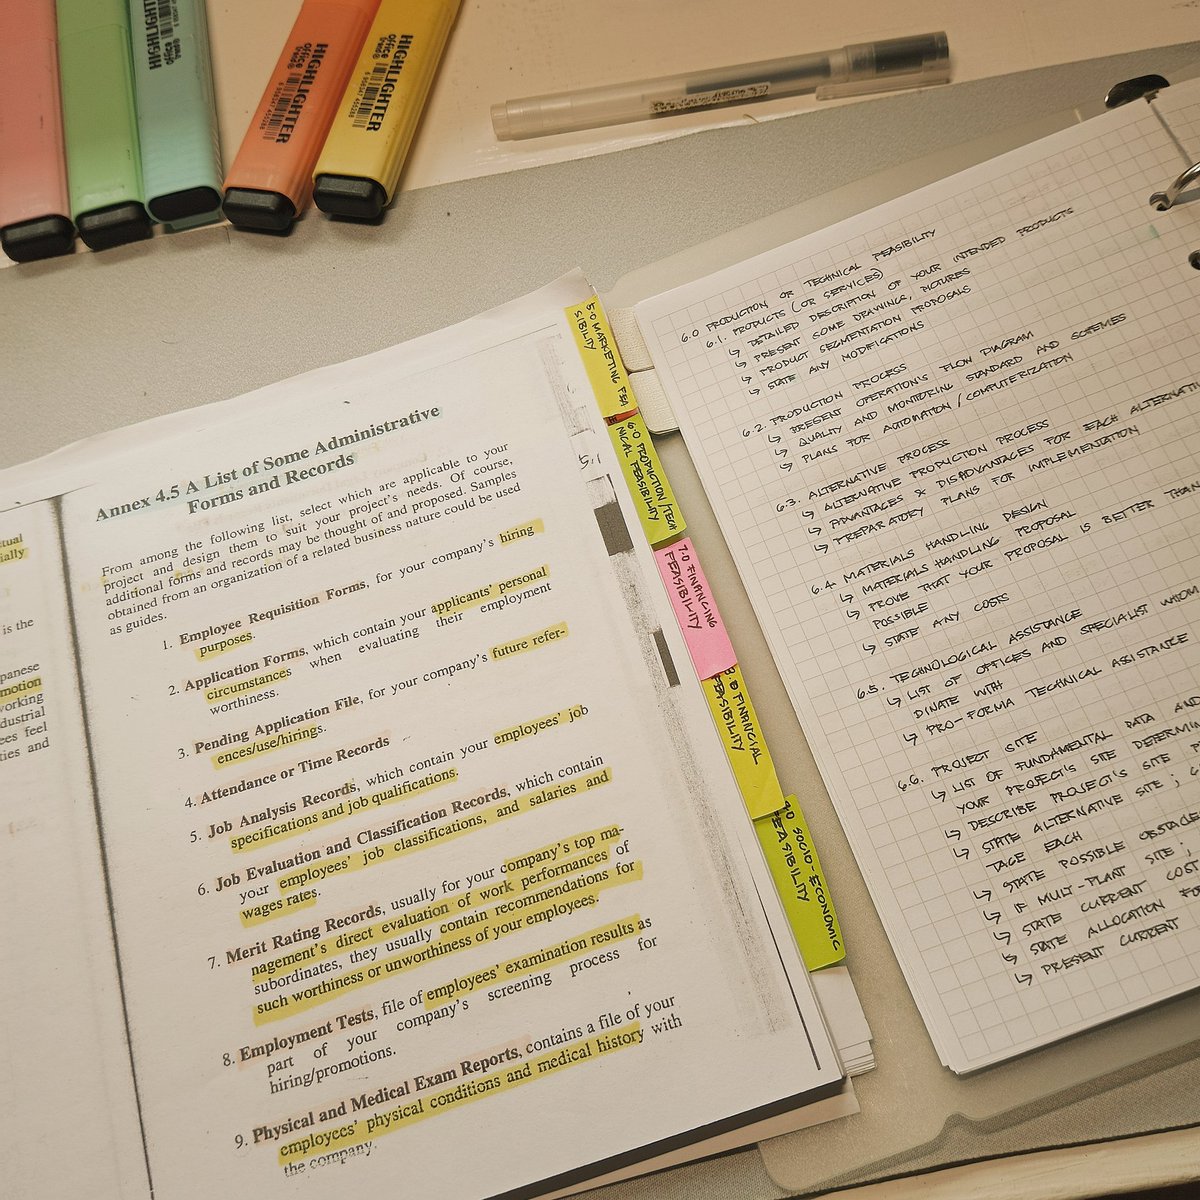 HIGHLIGHTER
office
HIGHLIGHTER
office
HIGHLIGHTER
office
tual
ially
is the
panese
motion
working
dustrial
ees feel
ties and
Annex 4.5 A List of Some Administrative
Forms and Records
From among the following list, select which are applicable to your
project and design them to suit your project's needs. Of course,
additional forms and records may be thought of and proposed. Samples
obtained from an organization of a related business nature could be used
as guides.
1. Employee Requisition Forms, for your company's hiring
purposes.
2. Application Forms, which contain your applicants' personal
circumstances when evaluating their employment
worthiness.
3. Pending Application File, for your company's future refer-
ences/use/hirings.
4. Attendance or Time Records
5. Job Analysis Records, which contain your employees' job
specifications and job qualifications.
6. Job Evaluation and Classification Records, which contain
your employees' job classifications, and salaries and
wages rates.
7. Merit Rating Records, usually for your company's top ma-
nagement's direct evaluation of work performances of
subordinates, they usually contain recommendations for
such worthiness or unworthiness of your employees.
8. Employment Tests, file of employees' examination results as
part of your company's screening process for
hiring/promotions.
9. Physical and Medical Exam Reports, contains a file of your
employees' physical conditions and medical history with
the company.
5.1
5.0 MARKETING FEA
SIBILITY
6.0 PRODUCTION/TECH
NICAL FEASIBILITY
7.0 FINANCING
FEASIBILITY
FINANCIAL
FEASIBILITY
SOCIO ECONOMIC
FEASIBILITY
6.0 PRODUCTION OR TECHNICAL FEASIBILITY
6.1. PRODUCTS (OR SERVICES)
↳ DETAILED DESCRIPTION OF YOUR INTENDED PRODUCTS
↳ PRESENT SOME DRAWINGS, PICTURES
↳ PRODUCT SEGMENTATION PROPOSALS
↳ STATE ANY MODIFICATIONS
6.2. PRODUCTION PROCESS
↳ PRESENT OPERATION'S FLOW DIAGRAM
↳ QUALITY AND MONITORING STANDARD AND SCHEMES
↳ PLANS FOR AUTOMATION / COMPUTERIZATION
6.3. ALTERNATIVE PROCESS
↳ ALTERNATIVE PRODUCTION PROCESS
↳ ADVANTAGES & DISADVANTAGES FOR EACH ALTERNATI
↳ PREPARATORY PLANS FOR IMPLEMENTATION
6.4. MATERIALS HANDLING DESIGN
↳ MATERIALS HANDLING PROPOSAL
↳ PROVE THAT YOUR PROPOSAL IS BETTER THAN
POSSIBLE
↳ STATE ANY COSTS
6.5. TECHNOLOGICAL ASSISTANCE
↳ LIST OF OFFICES AND SPECIALIST WHOM
DINATE WITH
↳ PRO-FORMA TECHNICAL ASSISTANCE
6.6. PROJECT SITE
↳ LIST OF FUNDAMENTAL DATA AND
YOUR PROJECT'S SITE DETERMIN
↳ DESCRIBE PROJECT'S SITE
↳ STATE ALTERNATIVE SITE ;
TAGE EACH
↳ STATE POSSIBLE OBSTACLE
↳ IF MULTI-PLANT SITE ;
↳ STATE CURRENT COST
↳ STATE ALLOCATION
↳ PRESENT CURRENT